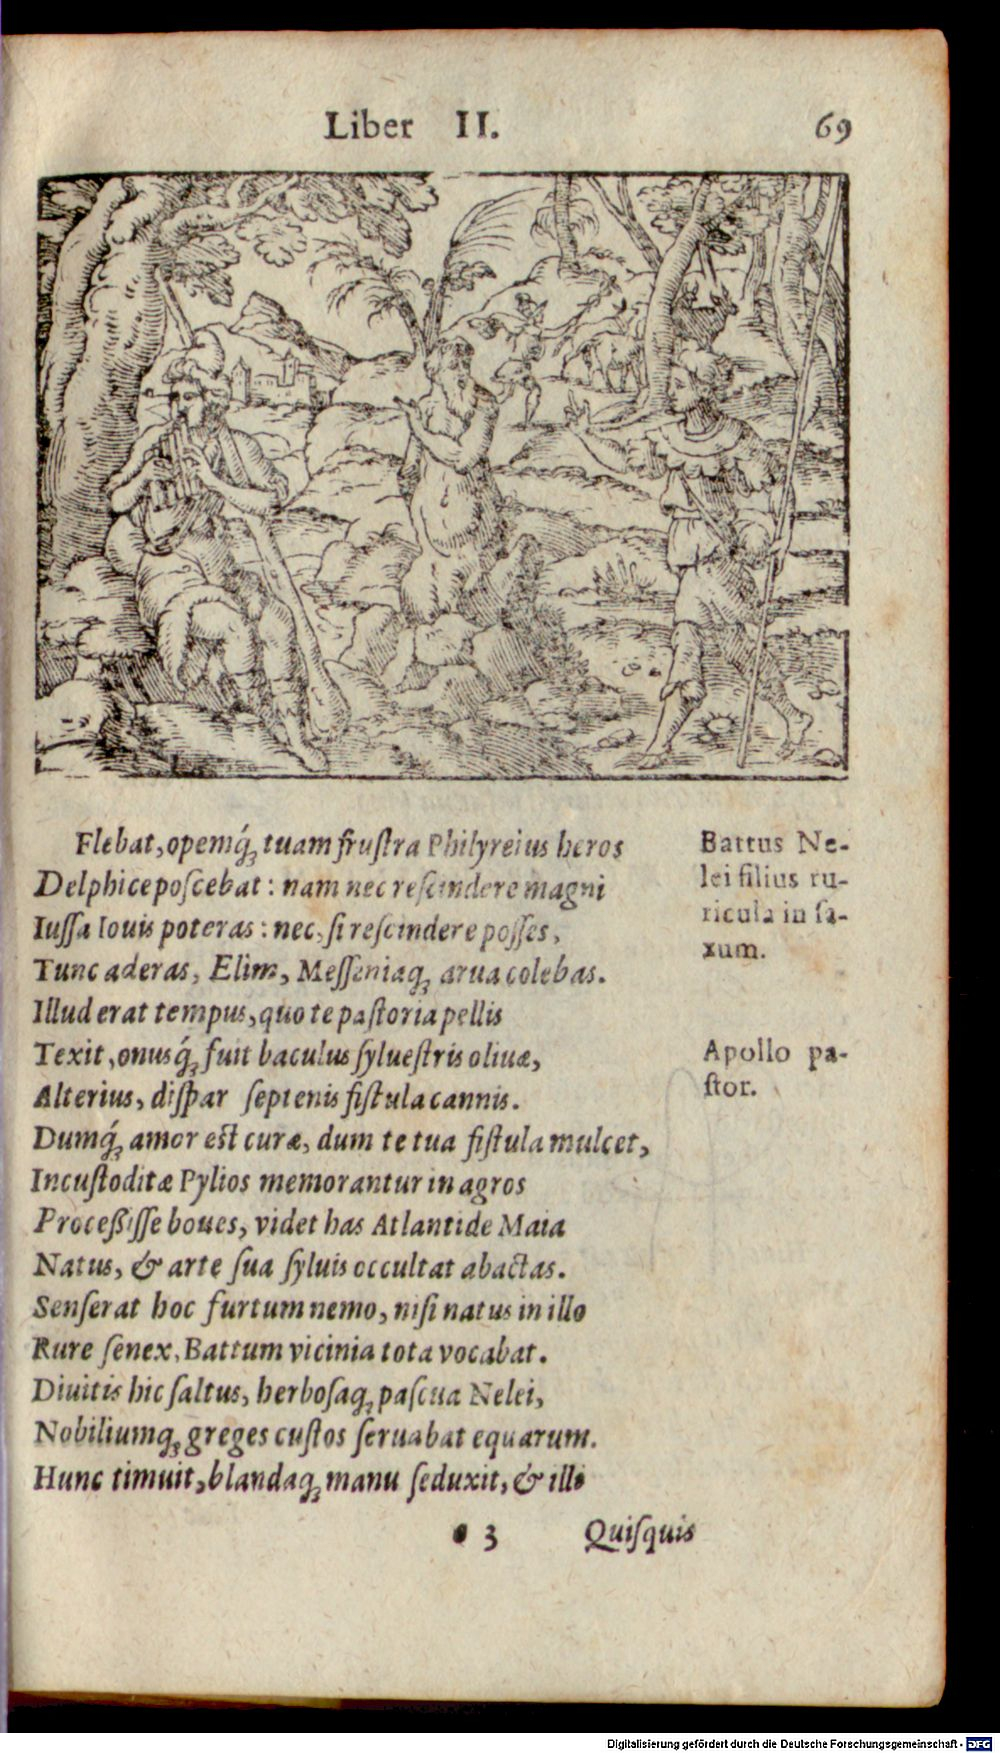 Liber II. 69
Flebat, opemq́ꝫ tuam fruſtra Philyreius heros
Delphice poſcebat : nam nec reſcindere magni
Iuſſa Iouis poteras : nec, ſi reſcindere poſſes,
Tunc aderas, Elim, Meſſeniaqꝫ arua colebas.
Illud erat tempus, quo te paſtoria pellis
Texit, onusq́ꝫ fuit baculus ſylueſtris oliuæ,
Alterius, diſpar ſeptenis fiſtula cannis.
Dumq́ꝫ amor eſt curæ, dum te tua fiſtula mulcet,
Incuſtoditæ Pylios memorantur in agros
Proceßiſſe boues, videt has Atlantide Maia
Natus, & arte ſua ſyluis occultat abactas.
Senſerat hoc furtum nemo, niſi natus in illo
Rure ſenex, Battum vicinia tota vocabat.
Diuitis hic ſaltus, herboſaqꝫ paſcua Nelei,
Nobiliumqꝫ greges cuſtos ſeruabat equarum.
Hunc timuit, blandaqꝫ manu ſeduxit, & illi
Battus Ne-
lei filius ru-
ricula in ſa-
xum.
Apollo pa-
ſtor.
e 3 Quiſquis
Digitalisierung gefördert durch die Deutsche Forschungsgemeinschaft - DFG